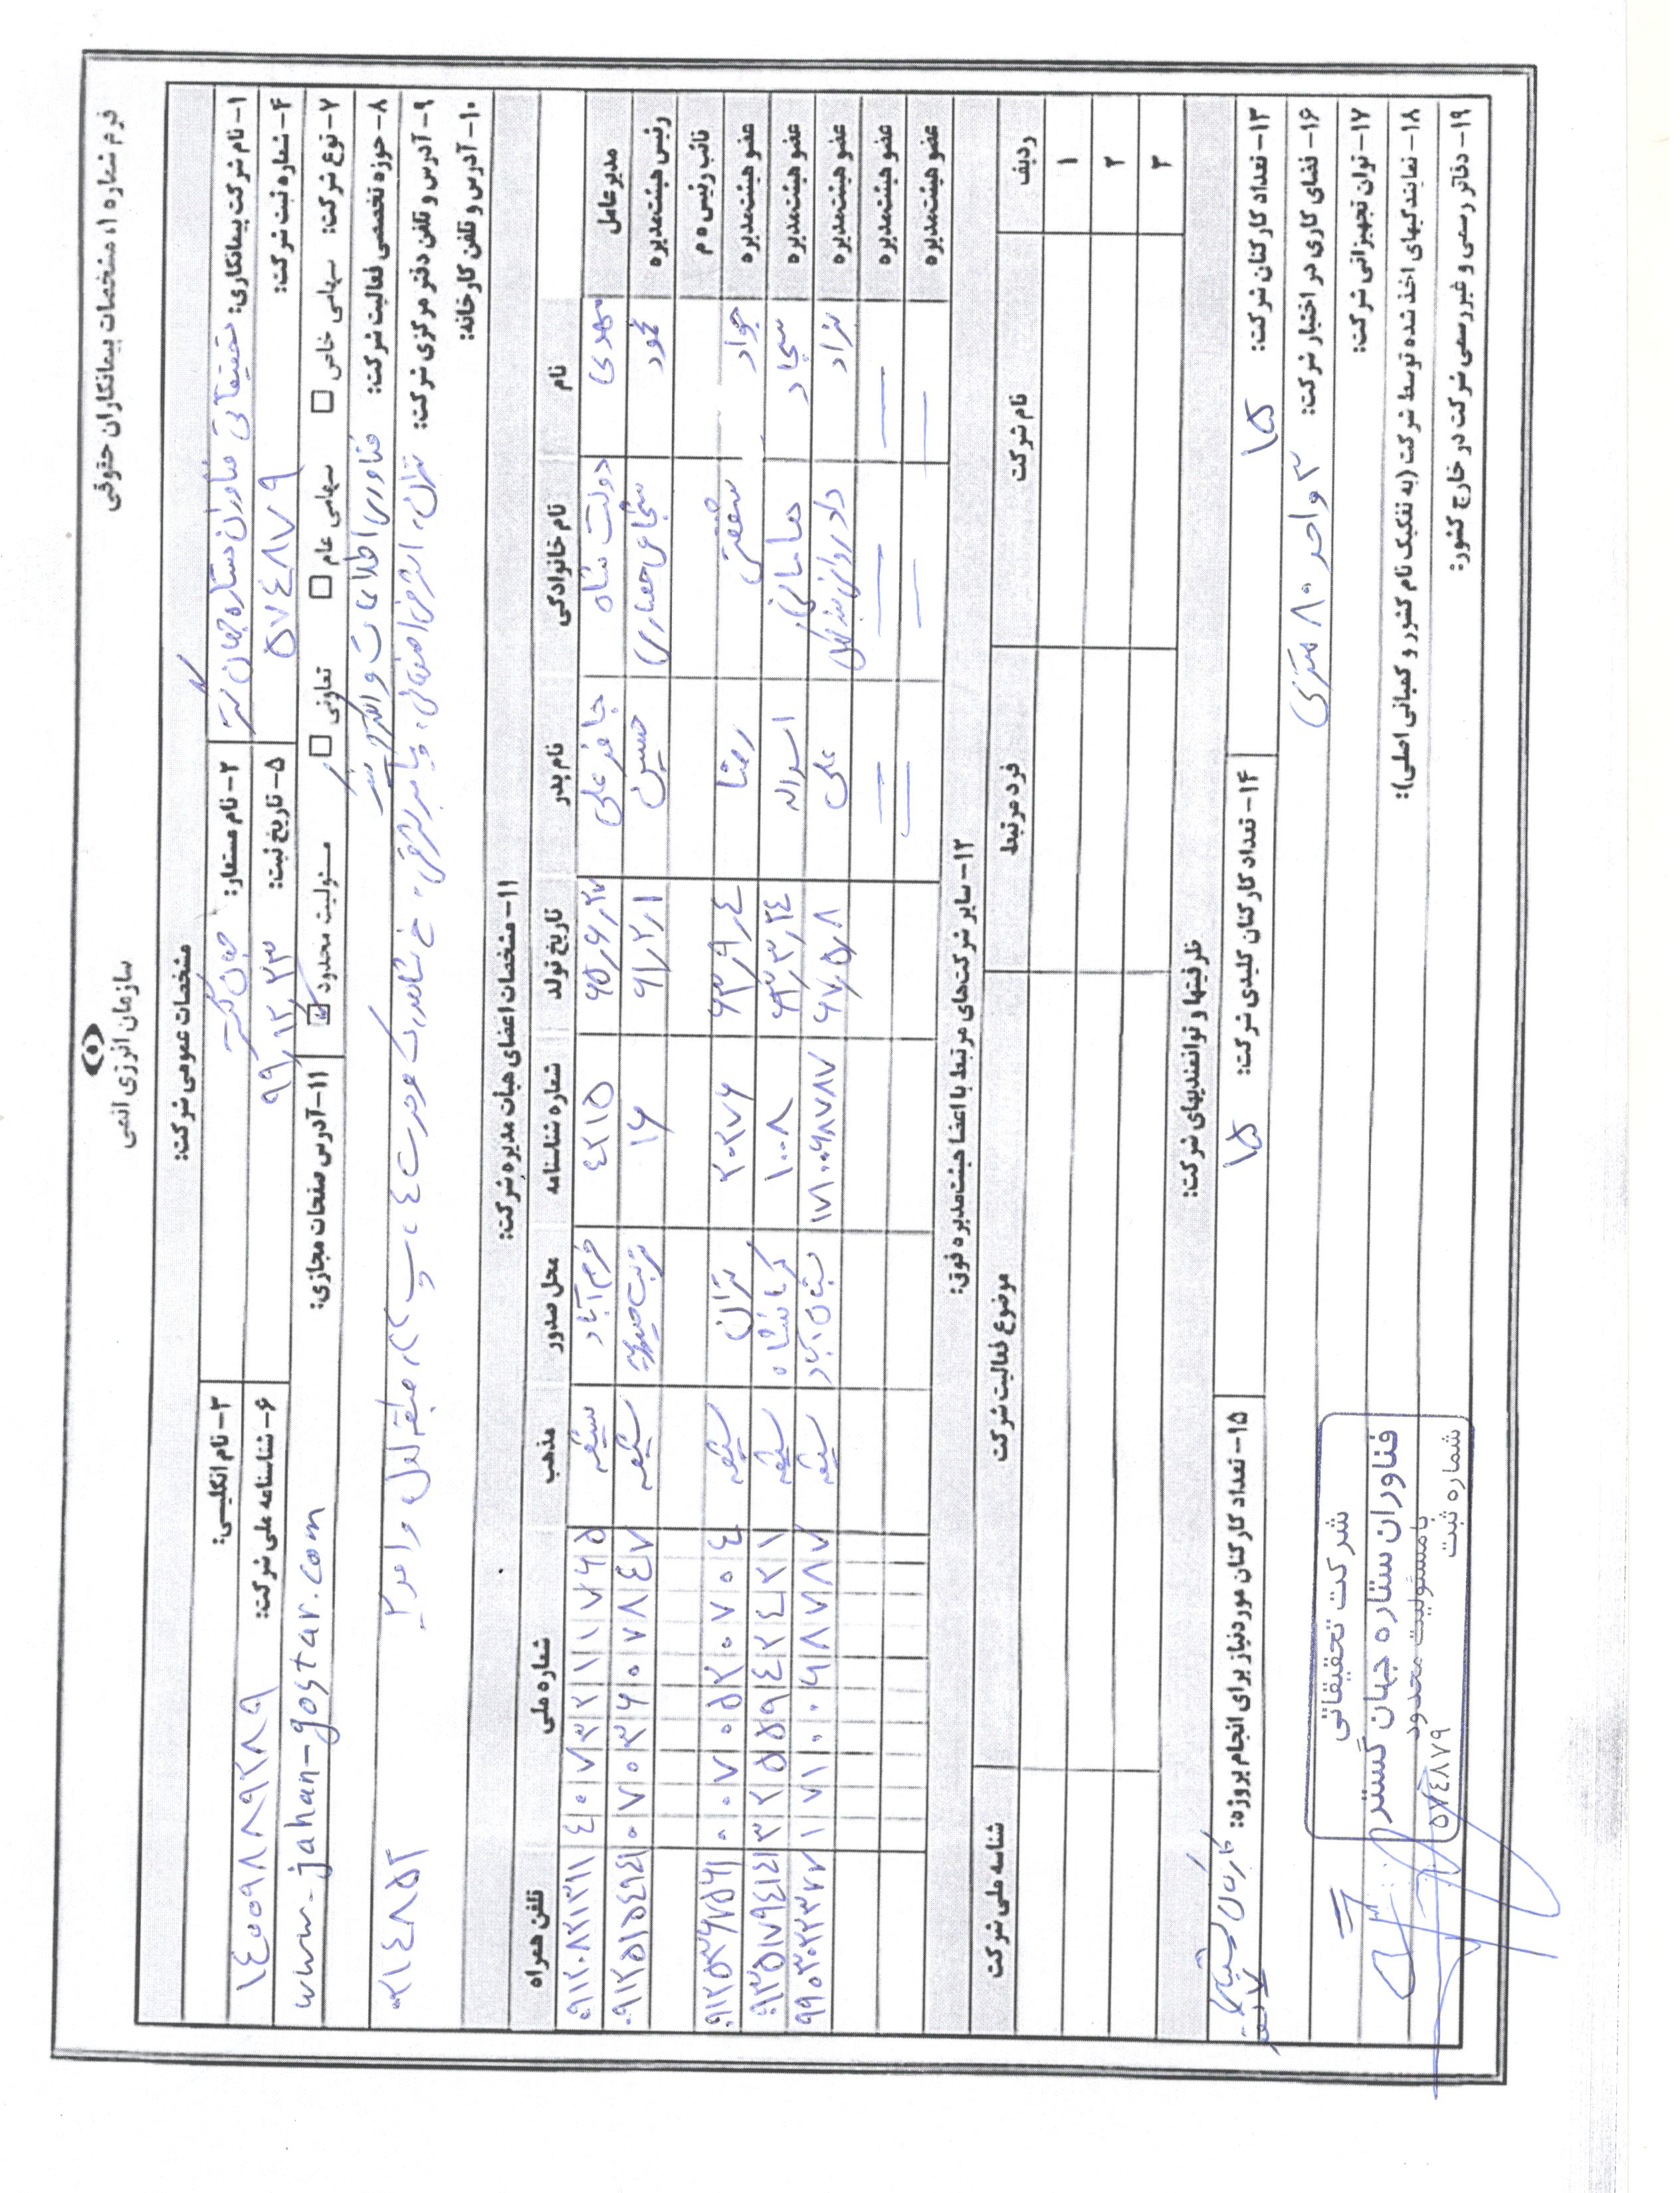 فرم شماره ۱، مشخصات پیمانکاران حقوقی
سازمان انرژی اتمی
مشخصات عمومی شرکت:
۱- نام شرکت پیمانکاری: تحقیقاتی فناوران ستاره جهان گستر ۲- نام مستعار: جهان گستر ۳- نام انگلیسی:
۴- شماره ثبت شرکت: ۵۷۴۸۷۹ ۵- تاریخ ثبت: ۹۹/۱۲/۲۳ ۶- شناسنامه ملی شرکت: ۱۴۰۰۹۸۸۹۳۸۹
۷- نوع شرکت: سهامی خاص □ سهامی عام □ تعاونی □ مسئولیت محدود ☑ ۱۱- آدرس صفحات مجازی: www.jahan-gostar.com
۸- حوزه تخصصی فعالیت شرکت: فناوری اطلاعات و
۹- آدرس و تلفن دفتر مرکزی شرکت: تهران، اشرفی اصفهانی، طبقه اول واحد ۲ ۰۲۱۴۸۵۲
۱۰- آدرس و تلفن کارخانه:
۱۱- مشخصات اعضای هیأت مدیره شرکت:
نام نام خانوادگی نام پدر تاریخ تولد شماره شناسنامه محل صدور مذهب شماره ملی تلفن همراه
مدیر عامل مهدی دولت شاه ۶۵/۶/۲۷ ۴۲۱۵ خرم آباد شیعه ۴۰۷۳۲۱۱۷۶۵ ۰۹۱۲۰۸۲۱۳۱۱
رئیس هیئت مدیره محمود شجاعی حصاری حسین ۶۱/۲/۱ ۱۶ تربت حیدریه شیعه ۰۷۰۳۶۰۷۸۴۷
نائب رئیس ه م
عضو هیئت مدیره جواد شفقتی رضا ۶۳/۹/۴ ۲۰۲۷۶ تهران شیعه ۰۰۷۰۵۲۰۷۰۴
عضو هیئت مدیره سجاد اسداله ۶۳/۳/۲۴ ۱۰۰۸ کرمانشاه شیعه ۳۲۵۵۹۴۲۴۲۱ ۰۹۳۵۱۷۹۴۱۴۱
عضو هیئت مدیره علی ۶۷/۵/۸ ۱۷۱۰۰۶۸۷۸۷ بستان آباد شیعه ۱۷۱۰۰۶۸۷۸۷
عضو هیئت مدیره
عضو هیئت مدیره
۱۲- سایر شرکت‌های مرتبط با اعضا هیئت مدیره فوق:
ردیف نام شرکت فرد مرتبط موضوع فعالیت شرکت شناسه ملی شرکت
۱
۲
۳
ظرفیتها و توانمندیهای شرکت:
۱۳- تعداد کارکنان شرکت: ۱۵ ۱۴- تعداد کارکنان کلیدی شرکت: ۱۵ ۱۵- تعداد کارکنان موردنیاز برای انجام پروژه:
۱۶- فضای کاری در اختیار شرکت: ۳ واحد ۸۰ متری
۱۷- توان تجهیزاتی شرکت:
۱۸- نمایندگیهای اخذ شده توسط شرکت (به تفکیک نام کشور و کمپانی اصلی):
۱۹- دفاتر رسمی و غیررسمی شرکت در خارج کشور:
شرکت تحقیقاتی
فناوران ستاره جهان گستر
بامسئولیت محدود
شماره ثبت ۵۷۴۸۷۹